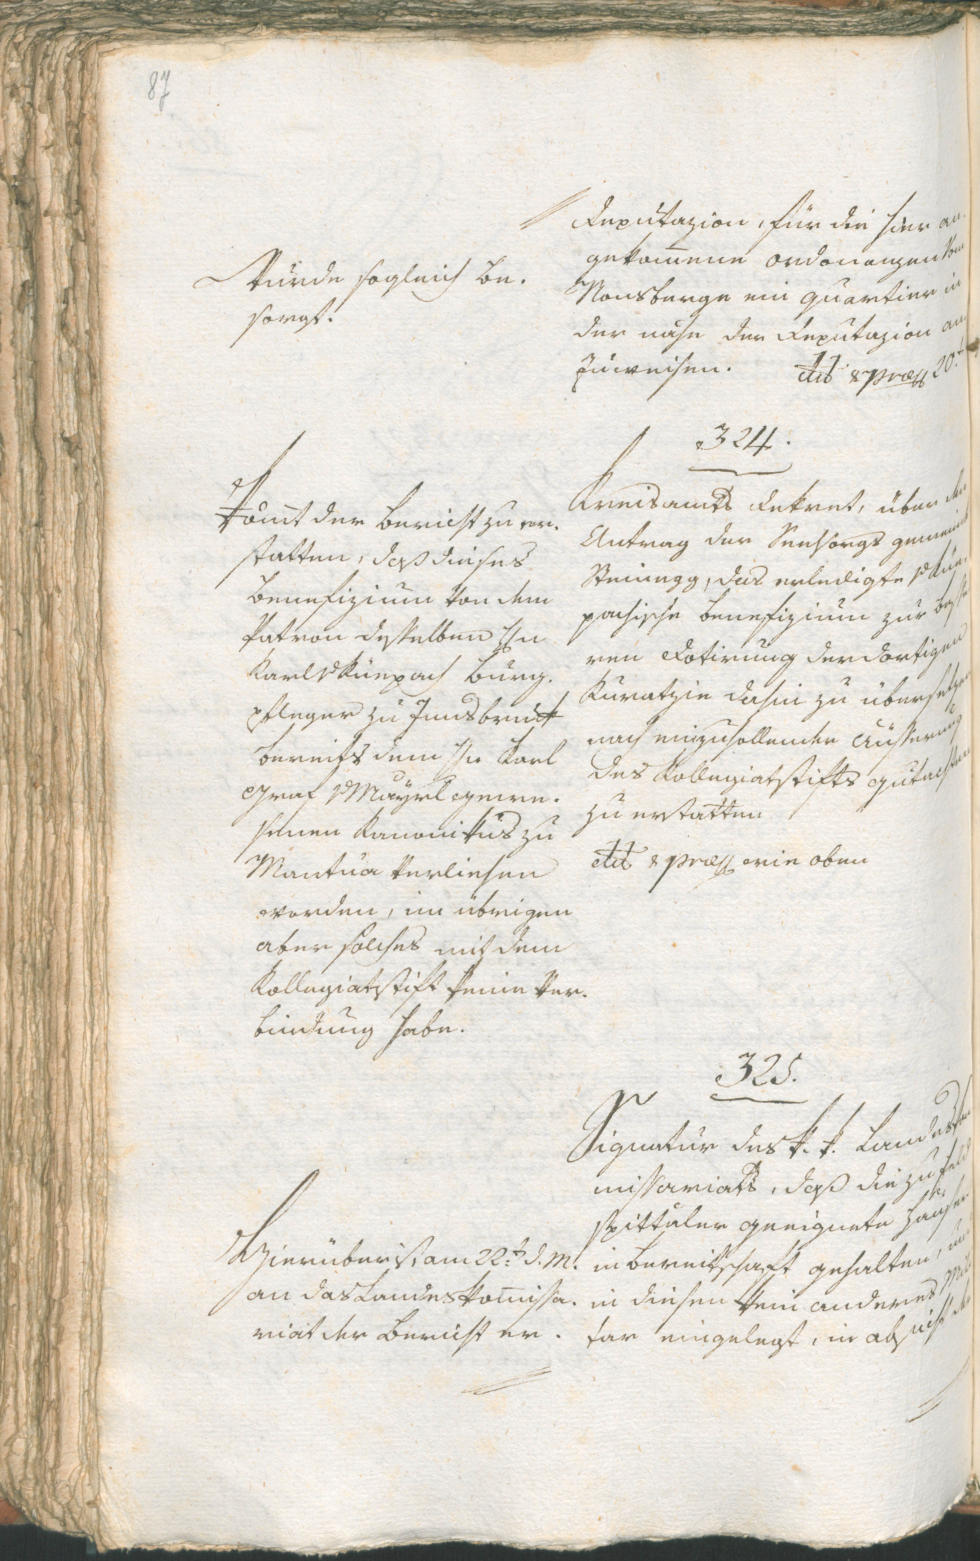 87
Deputazion, für die hier an-
gekom̅ene ordonanzen vom
Nonsberge ein quartier in
der nähe der Deputazion an
zuweisen.
dtô & præs 20.t
Wurde sogleich be-
sorgt.
324.
Kreisamts Dekret, über den
Antrag der Seelsorgs gemeinde
Steinegg, das erledigte v Küe-
pachische Benefizium zur bess
ren Dotirung der dortigen
Kuratzie dahin zu übersetzen
nach einzuhollender Äußerung
des Kollegiatstifts gutachten
zu erstatten
dtô & præs wie oben
Kom̅t der Bericht zu er-
statten, daß dieses
Benefizium von dem
Patron desselben Hn
Karl v Küepach Burg-
pfleger zu Innsbruck
bereits dem Hn Karl
Graf v Mayrl gewe-
senen Kanonikus zu
Mantua verliehen
worden, im übrigen
aber solches mit dem
Kollegiatstift keine Ver-
bindung habe.
325.
Signatur des k. k. Landesko
missariats, daß die zu Feld
spittäler geeignete Häuser
in Bereitschaft gehalten, und
in diesen kein anderes Mili
tar eingelegt, in absicht der
Hierüber ist am 22.t d. M.
an das Landeskom̅issa-
riat der Bericht er-